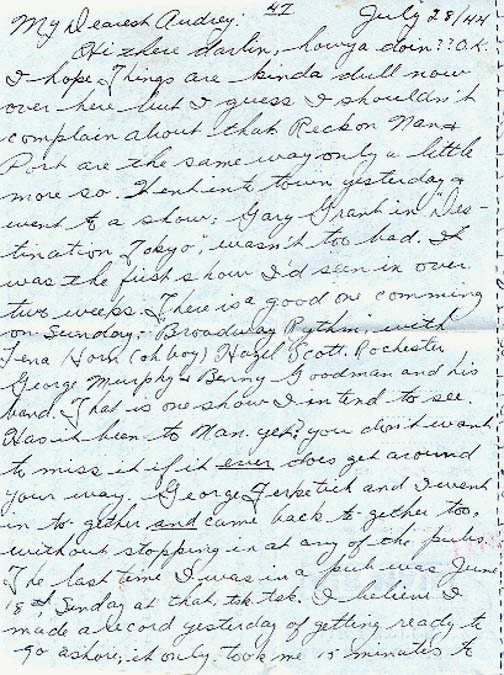 My Dearest Audrey: 47 July 28/44
Hi there darlin, howya doin?? O.K.
I hope. Things are kinda dull now
over here but I guess I shouldn't
complain about that. Reckon Nan &
Port are the same way only a little
more so. Went into town yesterday &
went to a show; Gary Grant in "Des-
tination Tokyo", wasn't too bad. It
was the first show I'd seen in over
two weeks. There is a good one comming
on Sunday;- Broadway Rythm, with
Lena Horn (oh boy) Hazel Scott. Rochester
George Murphy & Benny Goodman and his
band. That is one show I intend to see.
Has it been to Nan. yet? you don't want
to miss it if it ever does get around
your way. George and I went
in to-gether and came back to-gether too,
without stopping in at any of the pubs.
The last time I was in a pub was June
18th, Sunday at that, tsk tsk. I believe I
made a record yesterday of getting ready to
go ashore; it only took me 15 minutes to